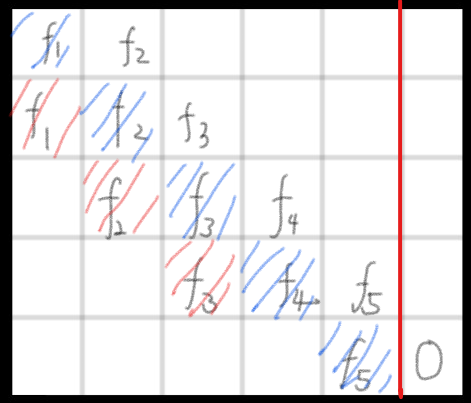 f₁ f₂
f₁ f₂ f₃
f₂ f₃ f₄
f₃ f₄ f₅
f₅ 0